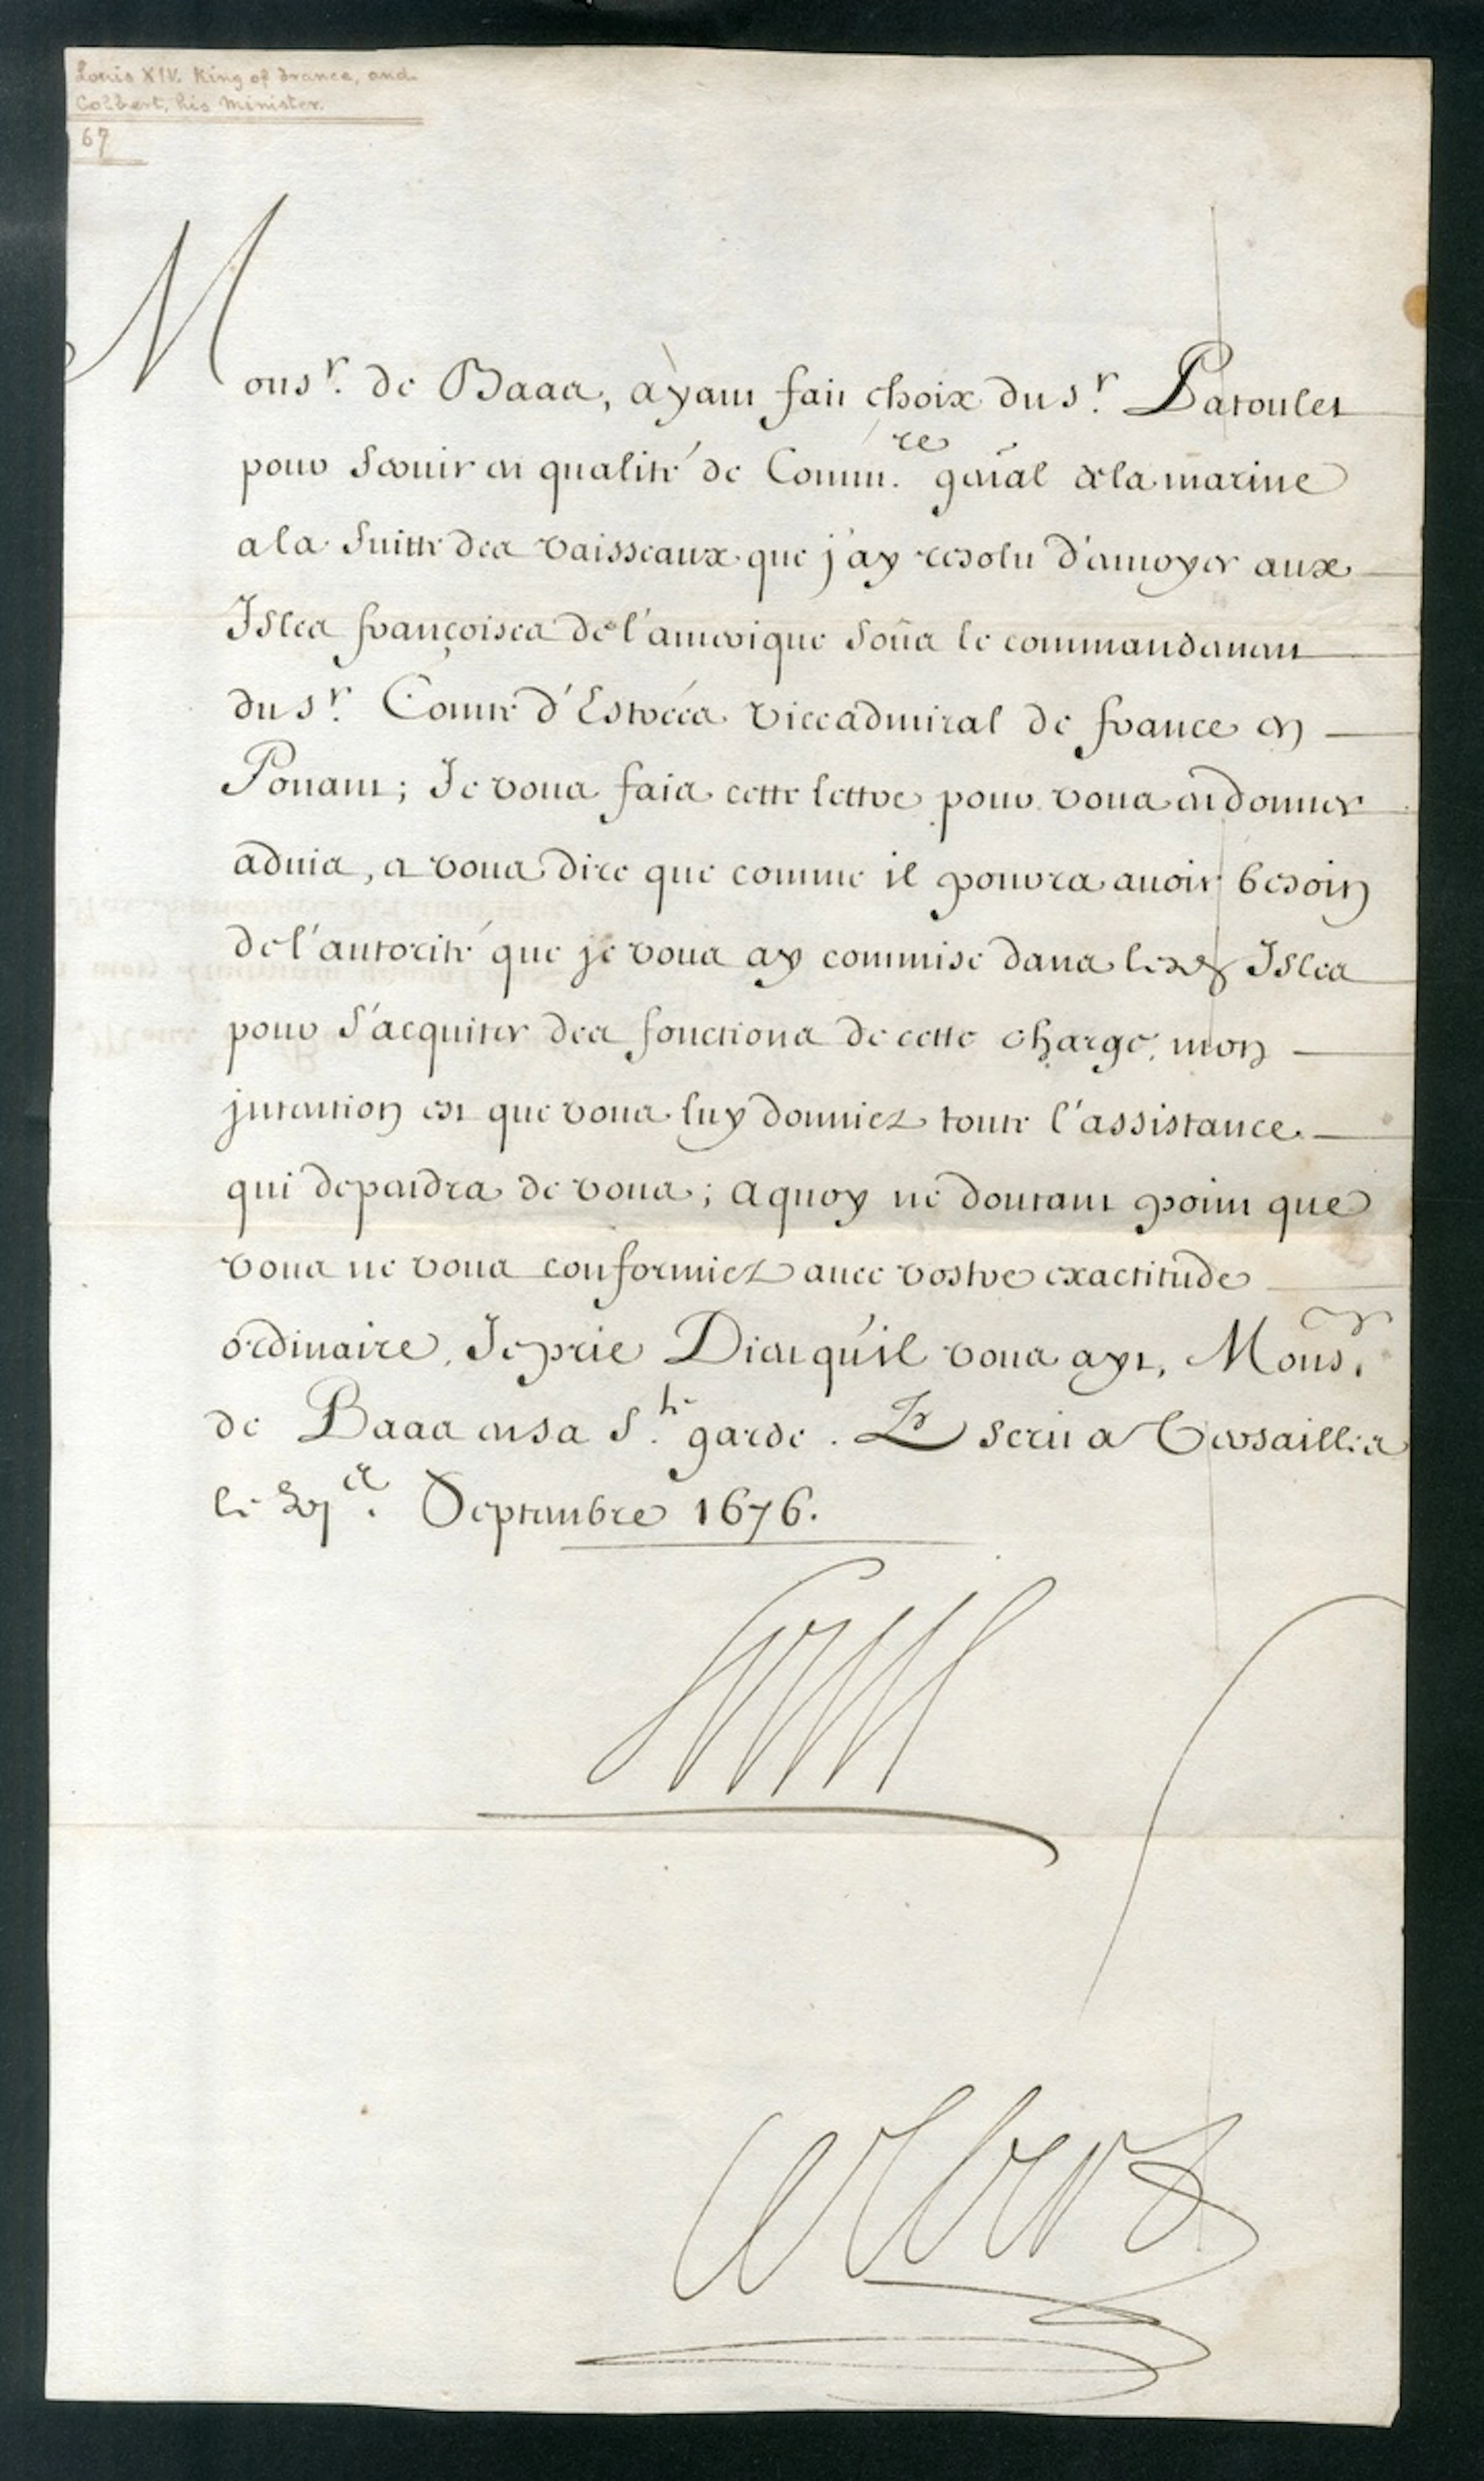 Louis XIV. King of France, and
Colbert, his Minister.
67
Monsr. de Baas, ayant fait choix du sr. Patoulet
pour seruir en qualité de Commre. gñal de la marine
a la suitte des vaisseaux que j'ay resolu d'enuoyer aux
Isles françoises de l'amerique soũs le commandement
du sr. Comte d'Estrées viceadmiral de france en
Ponant; Je vous fais cette lettre pour vous en donner
aduis, et vous dire que comme il pourra auoir besoin
de l'autorité que je vous ay commise dans lesd. Isles
pour s'acquiter des fonctions de cette charge, mon
jntention est que vous luy donniez toute l'assistance
qui dependra de vous; a quoy ne doutant point que
vous ne vous conformiez auec vostre exactitude
ordinaire, Je prie Dieu qu'il vous ayt, Monsr.
de Baas en sa Ste. garde. Escrit a Versailles
le Septembre 1676.
Louis
Colbert